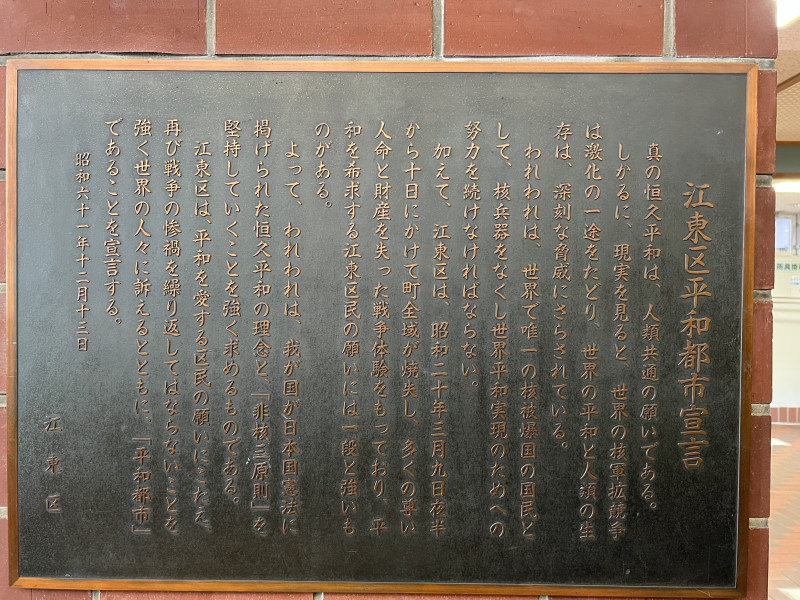 江東区平和都市宣言
真の恒久平和は、人類共通の願いである。
しかるに、現実を見ると、世界の核軍拡競争
は激化の一途をたどり、世界の平和と人類の生
存は、深刻な脅威にさらされている。
われわれは、世界で唯一の核被爆国の国民と
して、核兵器をなくし世界平和実現のためへの
努力を続けなければならない。
加えて、江東区は、昭和二十年三月九日夜半
から十日にかけて町全域が焼失し、多くの尊い
人命と財産を失った戦争体験をもっており、平
和を希求する江東区民の願いには一段と強いも
のがある。
よって、われわれは、我が国が日本国憲法に
掲げられた恒久平和の理念と、「非核三原則」を
堅持していくことを強く求めるものである。
江東区は、平和を愛する区民の願いにこたえ、
再び戦争の惨禍を繰り返してはならないことを
強く世界の人々に訴えるとともに、「平和都市」
であることを宣言する。
昭和六十一年十二月十三日
江東区